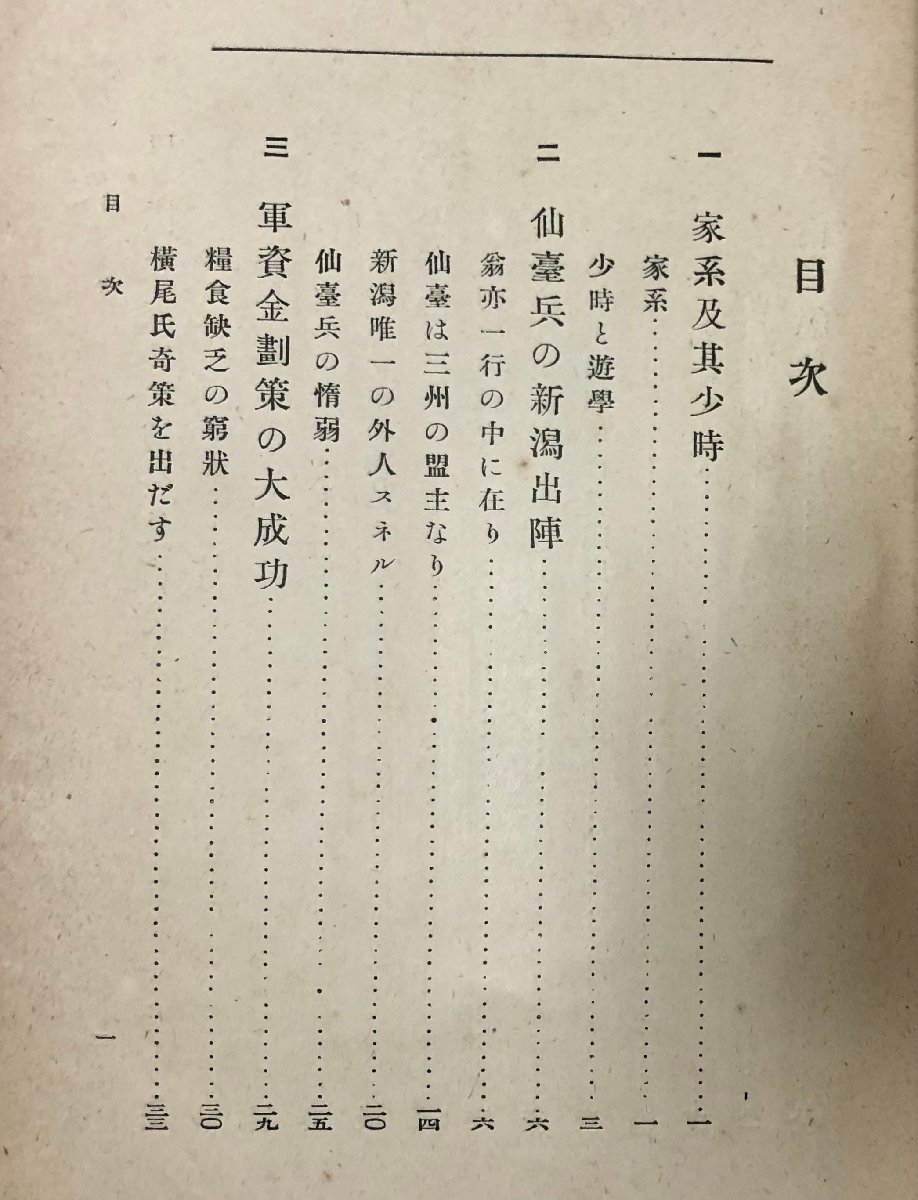 目次
一 家系及其少時……一
家系……一
少時と遊學……三
二 仙臺兵の新潟出陣……六
翁亦一行の中に在り……六
仙臺は三州の盟主なり……一四
新潟唯一の外人スネル……二〇
仙臺兵の惰弱……二五
三 軍資金劃策の大成功……二九
糧食缺乏の窮狀……三〇
橫尾氏奇策を出だす……三三
目次
一